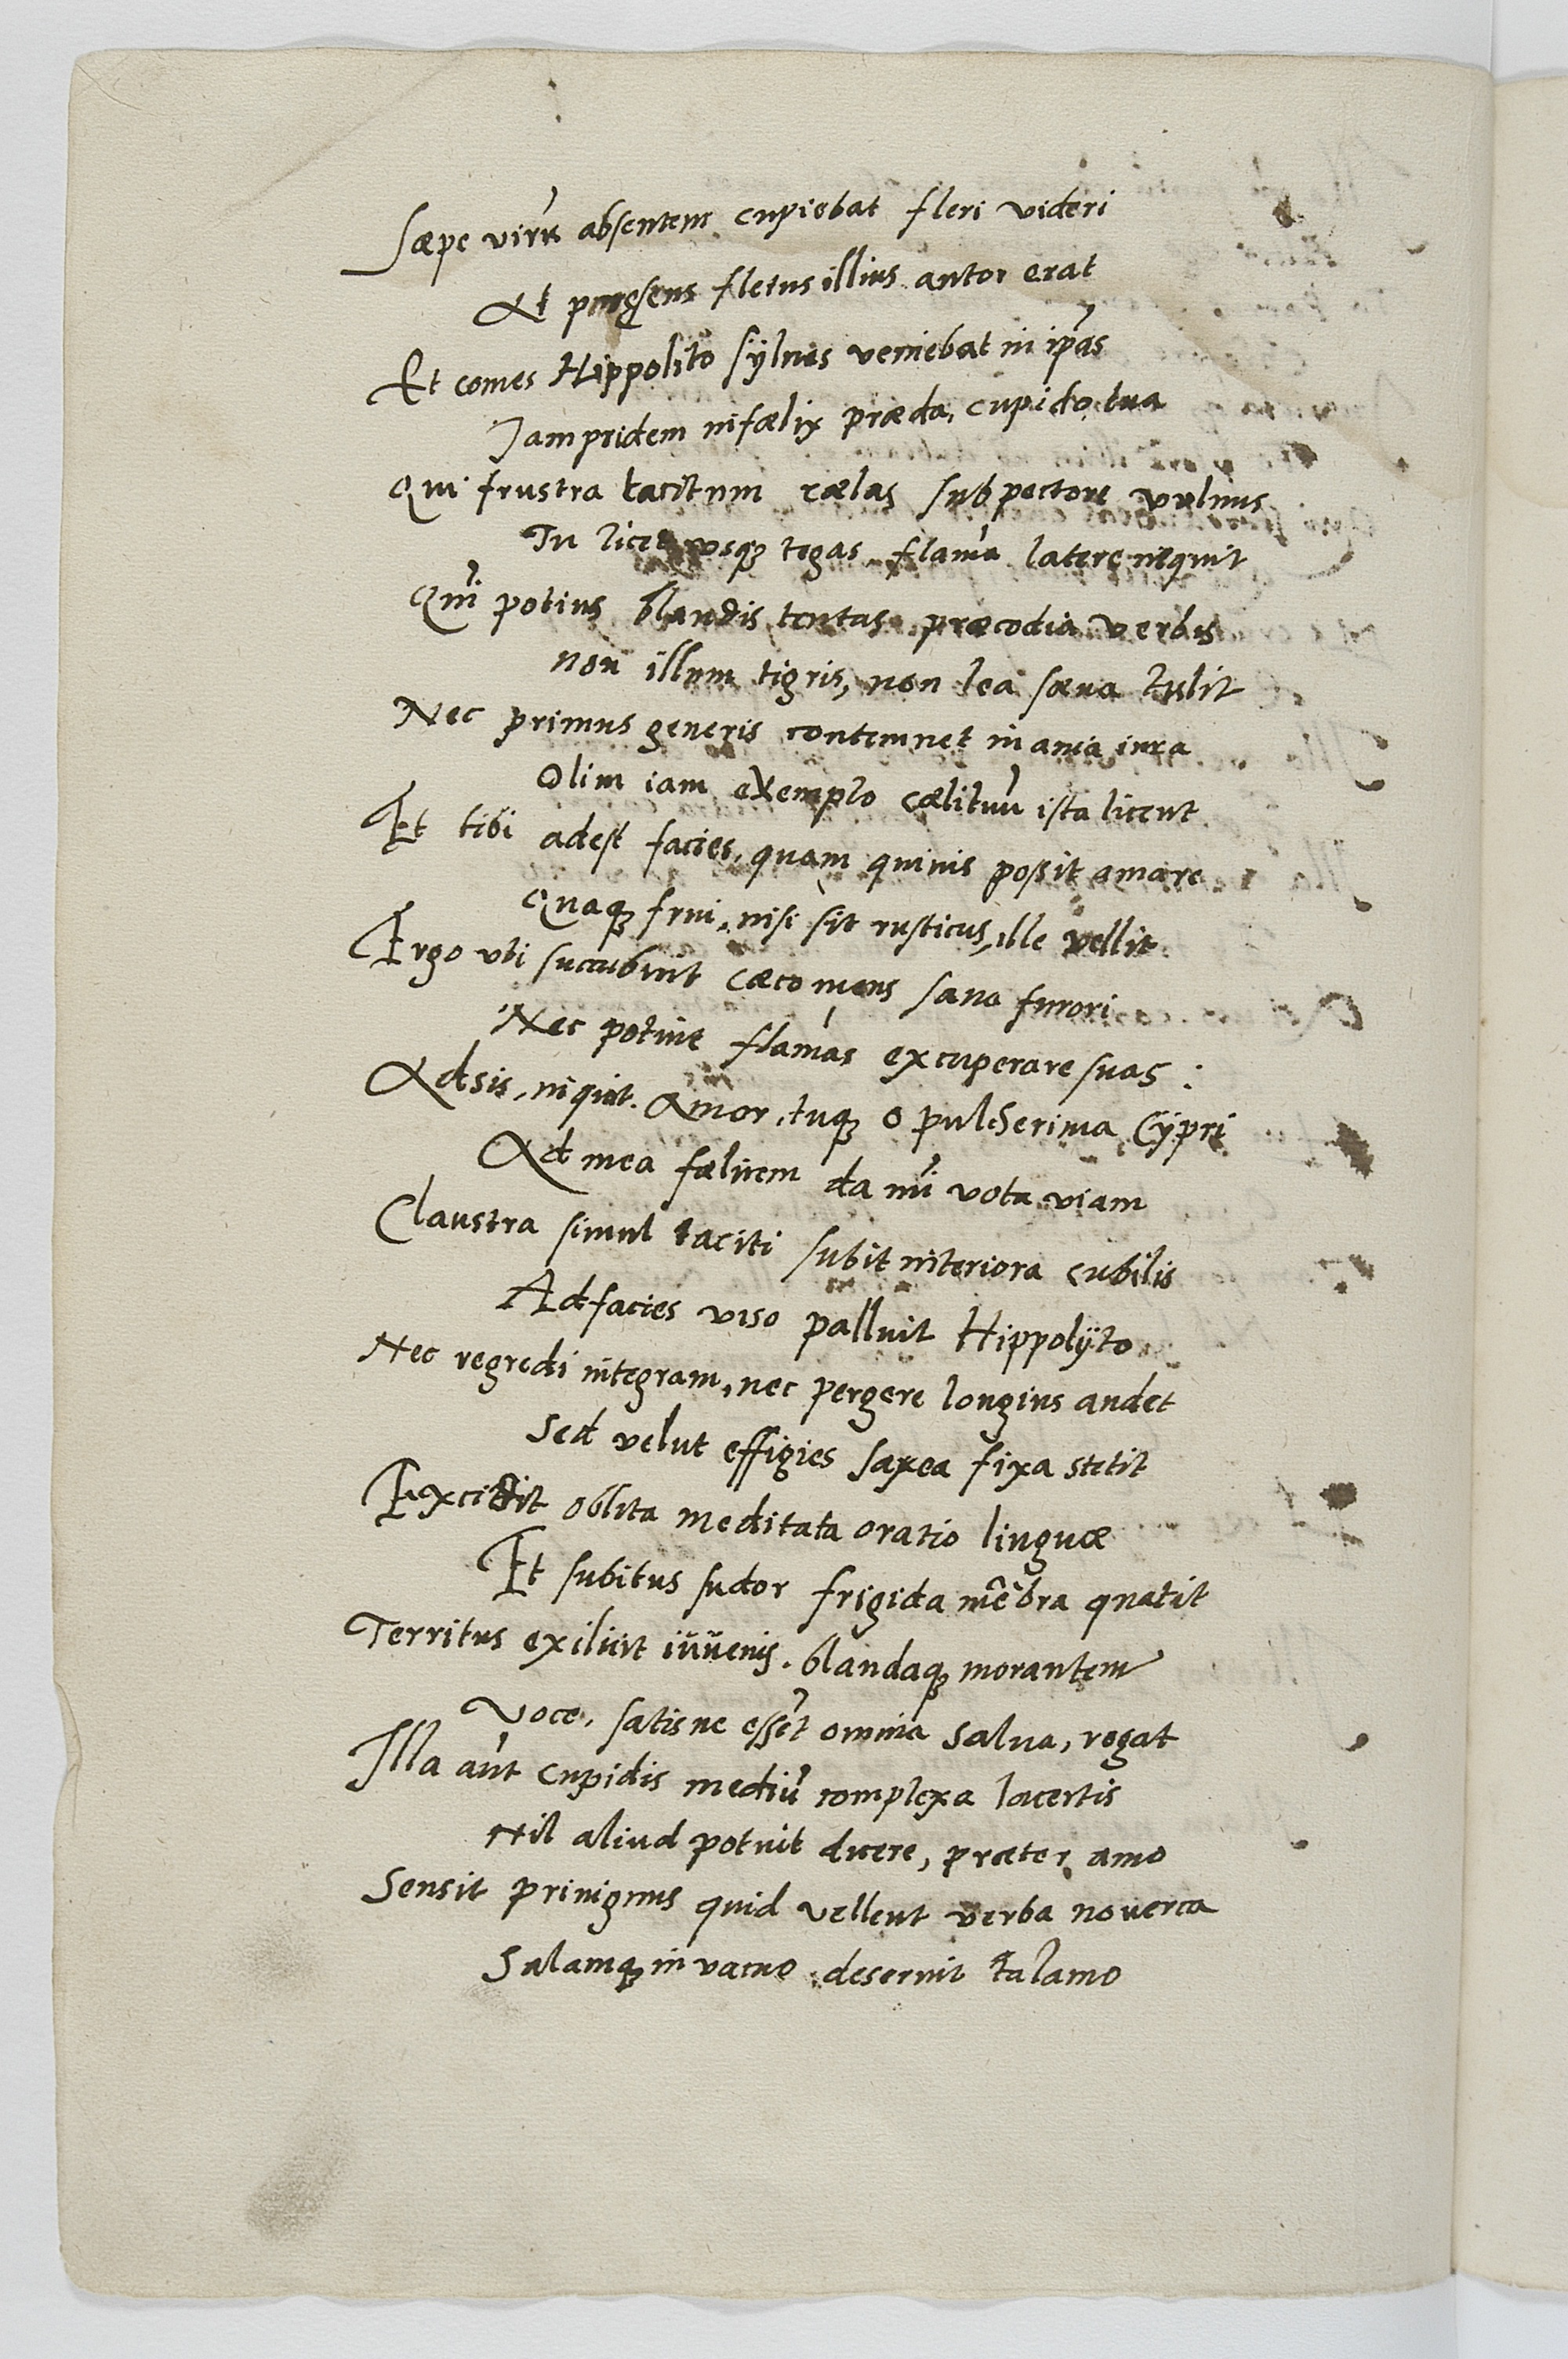 Sæpe virũ absentem cupiebat fleri videri
At pręsens fletus illius autor erat
Et comes Hippolito sÿluas veniebat in ipãs
Iampridem infœlix præda, cupido, tua
Qui frustra tacitum cælas sub pectore vulnus
Tu licet vsqꝫ tegas flam̃a latere nequit
Quĩ potius blandis tentas præcõdia verbis
non illum tigris, non lea sæua tulit
Nec primus generis contemnet inania iura
Olim iam exemplo cælituũ ista licent
Et tibi adest facies, quam quiuis possit amare
Quaqꝫ frui, nisi sit rusticus, ille vellit
Ergo vbi succubuit cæco mens sana furori
Nec potuit flam̃as excuperare suas :
Adsis, inquit. Amor, tuqꝫ o pulcherima Cÿpri
Ad mea fælicem da mĩ vota viam
Claustra simul taciti subit interiora cubilis
Ad facies viso palluit Hippolÿto
Nec regredi integram, nec pergere longius audet
Sed velut effigies saxea fixa stetit
Excidit oblita meditata oratio linguæ
Et subitus sudor frigida mẽbra quatit
Territus exiluit iuuenis. blandaqꝫ morantem
Voce, satisne essẽt omnia salua, rogat
Illa aũt cupidis mediũ complexa lacertis
Nil aliud potuit dicere, præter, amo
Sensit priuignus quid vellent verba nouerca
Salamqꝫ in vacuo deseruit talamo